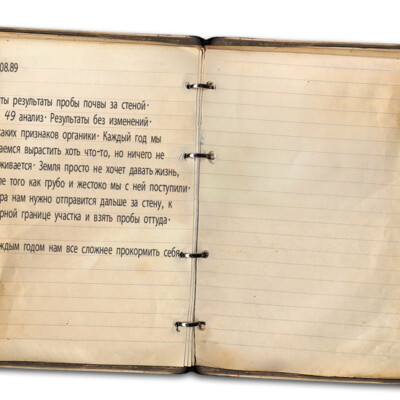 08.89
ты результаты пробы почвы за стеной.
49 анализ. Результаты без изменений.
аких признаков органики. Каждый год мы
аемся вырастить хоть что-то, но ничего не
живается. Земля просто не хочет давать жизнь,
ле того как грубо и жестоко мы с ней поступили.
ра нам нужно отправится дальше за стену, к
рной границе участка и взять пробы оттуда.
ждым годом нам все сложнее прокормить себя.